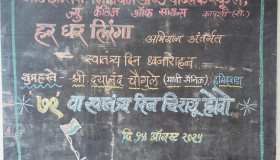 ज्यु. कॉलेज ऑफ सायन्स
हर घर तिरंगा अभियान अंतर्गत
स्वातंत्र्य दिन ध्वजारोहन
शुभहस्ते - श्री. दयानंद चौगुले (माजी सैनिक)
७९ वा स्वातंत्र्य दिन चिरायू होवो
दि. १५ ऑगस्ट २०२५